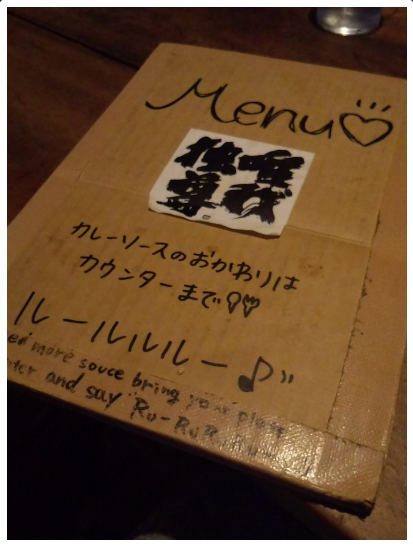 Menu♡
唯我
独尊
カレーソースのおかわりは
カウンターまで
ルールルルー♪
ed more souce bring your plate
ter and say "Ru-RuR